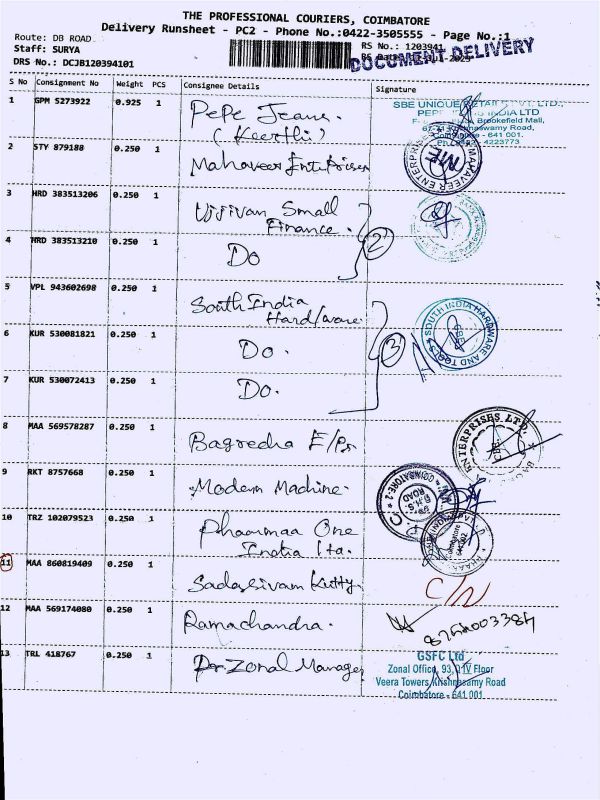 THE PROFESSIONAL COURIERS, COIMBATORE
Delivery Runsheet - PC2 - Phone No.:0422-3505555 - Page No.:1
Route: DB ROAD
Staff: SURYA
DRS No.: DCJB120394101
RS No.: 1203941
DOCUMENT DELIVERY
S No Consignment No Weight PCS Consignee Details Signature
1 GPM 5273922 0.925 1 Pepe Jeans.
(Keerthi)
SBE UNIQUE RETAIL PVT. LTD.,
INDIA LTD
Brookefield Mall,
67-71 Krishnaswamy Road,
Coimbatore - 641 001.
4223773
2 STY 879188 0.250 1 Mahaveer Enterprises
MAHAVEER ENTERPRISES ME
3 HRD 383513206 0.250 1 Ujjivan Small
Finance.
2
4 HRD 383513210 0.250 1 Do
5 VPL 943602698 0.250 1 South India
Hardware.
SOUTH INDIA HARDWARE AND TOOLS CBE
6 KUR 530081821 0.250 1 Do.
3
7 KUR 530072413 0.250 1 Do.
8 MAA 569578287 0.250 1 Bagrecha E/Ps
ENTERPRISES LTD. CBE
9 RKT 8757668 0.250 1 Modern Machine.
COIMBATORE-2
ROAD
10 TRZ 102079523 0.250 1 Phaarmaa One
India Lta.
11 MAA 860819409 0.250 1 Sadasivam Kutty
C/N
12 MAA 569174080 0.250 1 Ramachandra.
13 TRL 418767 0.250 1 Per Zonal Manager
GSFC Ltd
Zonal Office, 93, IV Floor
Veera Towers, Krishnasamy Road
Coimbatore - 641 001